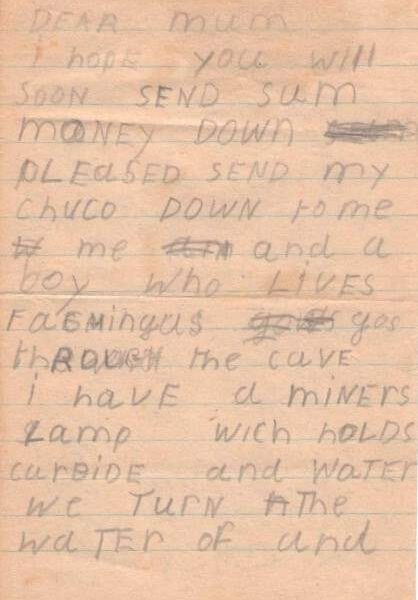 DEAR mum
i hope you will
SOON SEND Sum
mONEY DOWN
pLEASED SEND my
Chuco DOWN to me
me and a
boy who LIVES
gos
thROUGH the cave
i have a miNERS
Lamp wich hOLDS
carBIDE and WATER
we TURN The
waTER of and